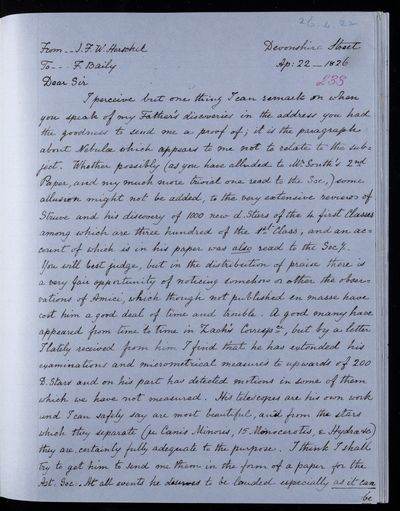 26.4.22
From - - J. F. W. Herschel Devonshire Street
To - - - F. Baily Ap: 22 _ 1826
Dear Sir 233
I perceive but one thing I can remark on when
you speak of my Father's discoveries in the address you had
the goodness to send me a proof of; it is the paragraph
about Nebulæ which appears to me not to relate to the sub-
ject. Whether possibly (as you have alluded to Mr. South's 2nd
Paper, and my much more trivial one read to the Soc,) some
allusion might not be added, to the very extensive reviews of
Struve and his discovery of 1000 new d. Stars of the 4 first Classes
among which are three hundred of the 1st Class, and an ac-
count of which is in his paper was also read to the Socy.
You will best judge, but in the distribution of praise there is
a very fair opportunity of noticing somehow or other the obser-
vations of Amici, which though not published en masse have
cost him a good deal of time and trouble. A good many have
appeared from time to time in Zach's Corresp, but by a letter
I lately received from him I find that he has extended his
examinations and micrometrical measures to upwards of 200
D. Stars and on his part has detected motions in some of them
which we have not measured. His telescopes are his own work
and I can safely say are most beautiful, and from the stars
which they separate ( Canis Minoris, 15 Monocerotis, ε Hydræ &c)
they are certainly fully adequate to the purpose. I think I shall
try to get him to send me them in the form of a paper for the
Ast. Soc. At all events he deserves to be lauded especially as it can
be